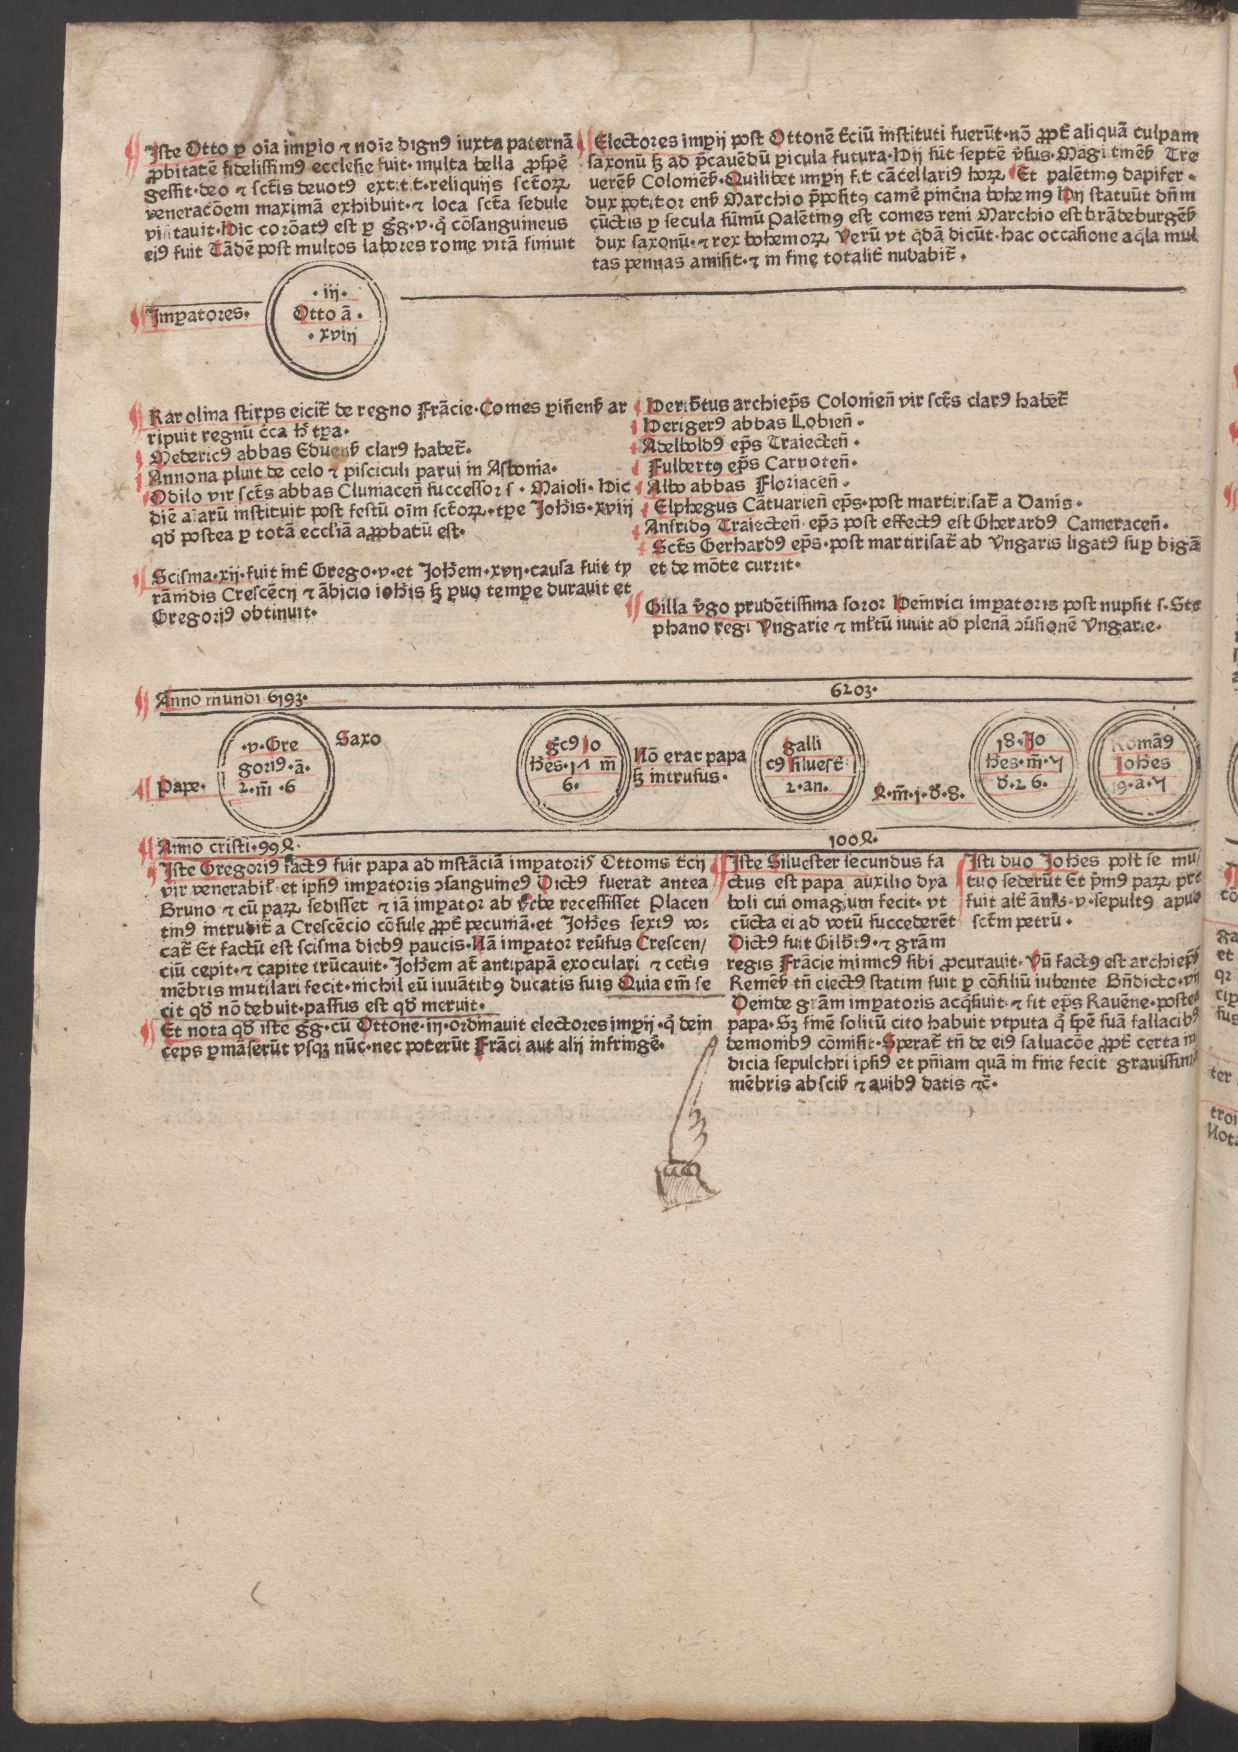 Iste Otto ꝑ oīa imꝑio ⁊ noīe dignꝰ iuxta paternā
ꝓbitatē fidelissimꝰ ecclesie fuit· multa bella ꝓspē
gessit· deo ⁊ sctīs deuotꝰ extitit· reliquijs sctōꝝ
veneracōem maximā exhibuit· ⁊ loca sctā sedule
visitauit· Hic corōatꝰ est ꝑ gg̃· v· q̇ cōsanguineus
eiꝰ fuit Tādē post multos labores rome vitā finiuit
Electores imꝑij post Ottonē tc̄iū instituti fuerūt· nō ꝓpt̄ aliquā culpam
saxonū sꝫ ad p̄cauēdū ꝑicula futura· Hij sūt septē v̄sus· Māgūtinēƀ Tre
uerēƀ Coloniēƀ· Quilibet imꝑij fit cācellariꝰ hoꝝ Et palētinꝰ dapifer·
dux portitor enƀ Marchio p̄positꝰ camē pincēna bohemꝰ Hij statuūt dn̄m
cūctis ꝑ secula sūmū Palētinꝰ est comes reni Marchio est brādeburgēƀ
dux saxonū· ⁊ rex bohemoꝝ Verū vt qͥdā dicūt· hac occasione aqͥla mul
tas pennas amisit· ⁊ in fine totalit̄ nudabit̄·
Imꝑatores·
· iij·
Otto ā·
· xviij
Karolina stirps eicit̄ de regno Frācie· Comes ꝑisienƀ ar
ripuit regnū c̄ca ħ tꝑa·
Medericꝰ abbas Eduenƀ clarꝰ habet̄·
Annona pluit de celo ⁊ pisciculi parui in Asbonia·
Odilo vir sctꝰ abbas Cluniaceñ successor s· Maioli· Hic
diē aīarū instituit post festū oīm sctōꝝ· tꝑe Joħis· xviij
qđ postea ꝑ totā eccliā aꝓbatū est·
Scisma· xij· fuit int̄ Grego· v· et Joħem· xvij· causa fuit ty
rāmdis Crescēcij ⁊ ābicio ioħis sꝫ ꝑuo tempe durauit et
Gregoriꝰ obtinuit·
Heribt̄us archiep̄s Coloniēn vir sctꝰ clarꝰ habet̄
Herigerꝰ abbas Lobieñ·
Adelboldꝰ ep̄s Traiecteñ·
Fulbertꝰ ep̄s Carnoteñ·
Albo abbas Floriaceñ·
Elphegus Cātuarieñ ep̄s· post martirisat̄ a Danis·
Ansridꝰ Traiecteñ ep̄s post effectꝰ est Gherardꝰ Cameraceñ·
Sctꝰ Gerhardꝰ ep̄s· post martirisat̄ ab Vngaris ligatꝰ suꝑ bigā
et de mōte currit·
Gilla v̄go prudētissima soror Heinrici imꝑatoris post nupsit s· Ste
phano regi Vngarie ⁊ ml̄tū iuuit ad plenā ↄūsionē Vngarie·
Anno mundi 6193·
6203·
Pape·
·v· Gre
goriꝰ· ā·
2· m̄· 6
Saxo
gc̄ꝰ Jo
ħes· 17 m̄
6·
Nō erat papa
sꝫ intrusus·
galli
cꝰ siluest̄
2· an·
ꝶ· m̄· 1· đ· 8·
18· Jo
ħes· m̄· 7
đ· 26·
Romāꝰ
Joħes
19· ā· 7
Anno cristi· 99ꝶ·
100ꝶ·
Iste Gregoriꝰ factꝰ fuit papa ad instāciā imꝑatoris Ottonis tc̄ij
vir venerabil̄· et ipsiꝰ imꝑatoris ↄsanguineꝰ Dictꝰ fuerat antea
Bruno ⁊ cū paꝝ sedisset ⁊ iā imꝑator ab vrbe recessisset Placen
tinꝰ intrudit̄ a Crescēcio cōsule ꝓpt̄ pecuniā· et Joħes sextꝰ vo·
cat̄ Et factū est scisma diebꝰ paucis· Nā imꝑator reūsus Crescen/
ciū cepit· ⁊ capite trūcauit· Johem at̄ antipapā exoculari ⁊ cet̄is
mēbris mutilari fecit· nichil eū iuuātibꝰ ducatis suis Quia em̄ fe
cit qđ nō debuit· passus est qđ meruit·
Et nota qđ iste gg̃· cū Ottone· iij· ordinauit electores imꝑij· q̇ dein
ceps ꝑmāserūt vsqꝫ nūc· nec poterūt Frāci aut alij infringē·
Iste Siluester secundus fa
ctus est papa auxilio dya
boli cui omagium fecit· vt
cūcta ei ad votū succederēt
Dictꝰ fuit Gilbt̄ꝰ· ⁊ grām
regis Frācie inimicꝰ sibi ꝓcurauit· Vn̄ factꝰ est archiep̄s
Remēƀ tn̄ eiectꝰ statim fuit ꝑ cōsiliū iubente Bn̄dicto· vij
Deinde grām imꝑatoris acq̇siuit· ⁊ fit ep̄s Rauēne· postea
papa· Sꝫ finē solitū cito habuit vtputa q̇ spē suā fallacibꝰ
demonibꝰ cōmisit· Sperat̄ tn̄ de eiꝰ saluacōe ꝓpt̄ certa in
dicia sepulchri ipsiꝰ et pn̄iam quā in fine fecit grauissimā
mēbris abscisƀ ⁊ auibꝰ datis ⁊c̄·
Isti duo Joħes post se mu/
tuo sederūt Et p̄mꝰ paꝝ pre
fuit alt̄ ānis· v· sepultꝰ apud
sctm̄ petrū·